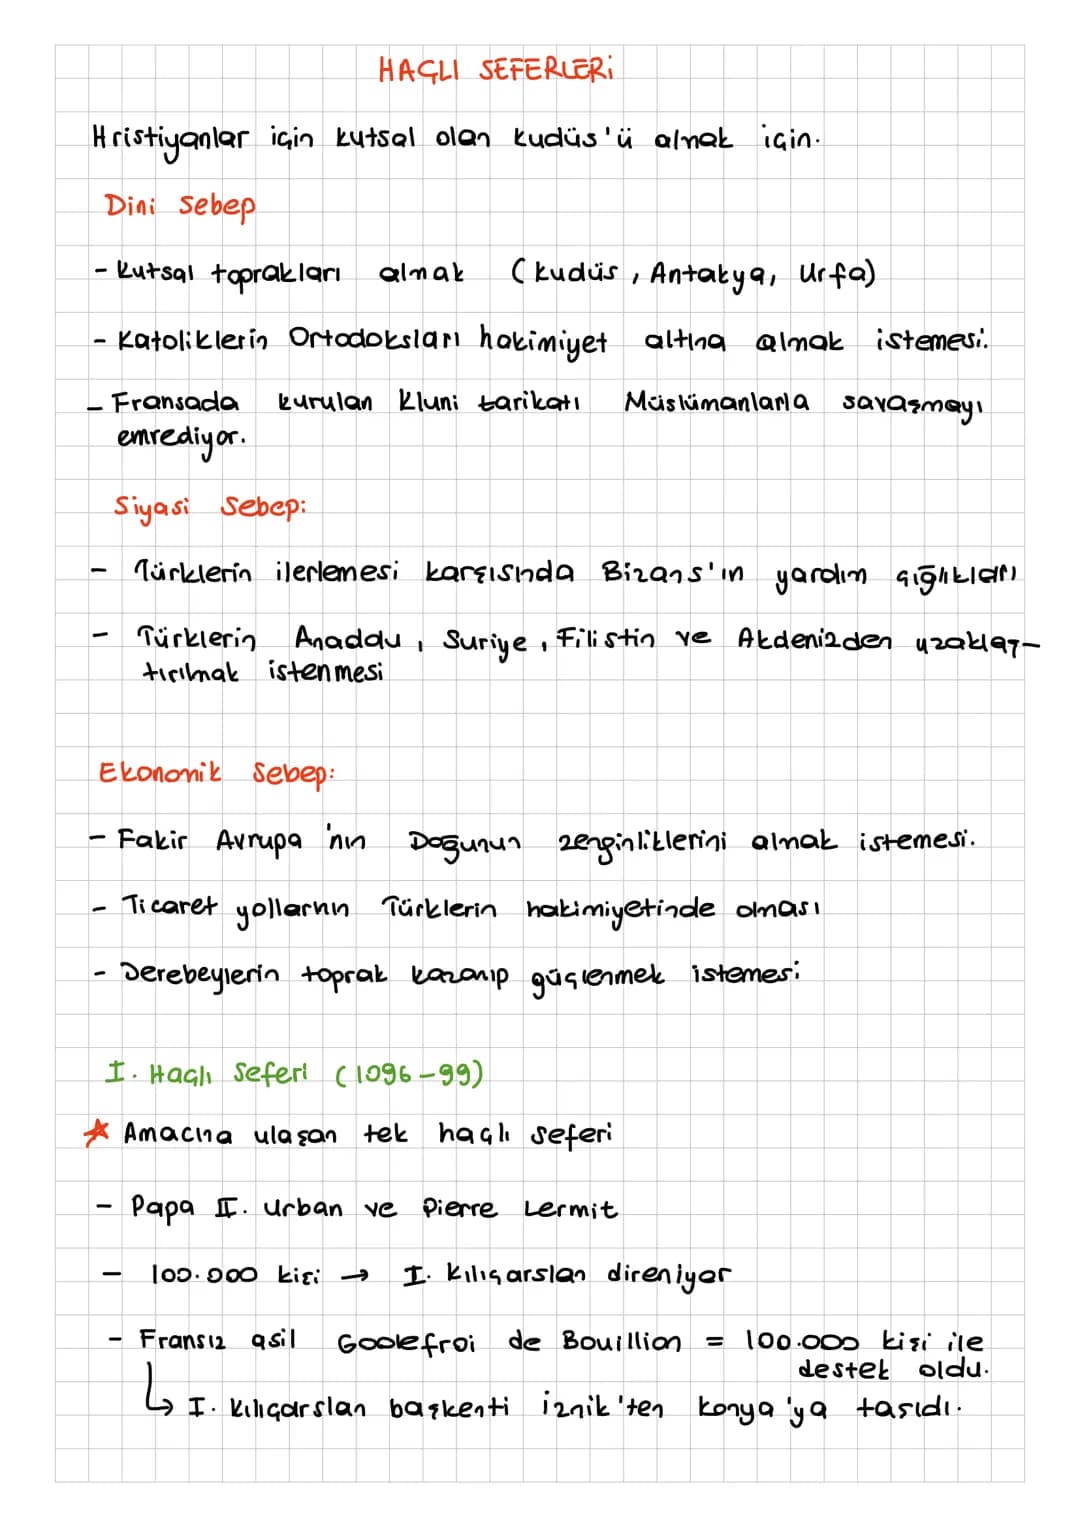 HAÇLI SEFERLERİ
Hristiyanlar için kutsal olan Kudüs'ü almak için.
Dini Sebep
- Kutsal toprakları almak (Kudüs, Antakya, Urfa)
- Katoliklerin Ortodoksları hakimiyet altına almak istemesi.
- Fransada kurulan Kluni tarikatı Müslümanlarla savaşmayı
emrediyor.
Siyasi Sebep:
- Türklerin ilerlemesi karşısında Bizans'ın yardım çığlıkları
- Türklerin Anadolu, Suriye, Filistin ve Akdenizden uzaklaş-
tırılmak istenmesi
Ekonomik Sebep:
- Fakir Avrupa'nın Doğunun zenginliklerini almak istemesi.
- Ticaret yollarının Türklerin hakimiyetinde olması
- Derebeylerin toprak kazanıp güçlenmek istemesi
I. Haçlı Seferi (1096-99)
☆ Amacına ulaşan tek haçlı seferi
- Papa II. Urban ve Pierre Lermit
- 100.000 kişi → I. Kılıçarslan direniyor
- Fransız asil Goolefroi de Bouillion = 100.000 kişi ile
destek oldu.
↳ I. Kılıçarslan başkenti İznik'ten Konya'ya taşıdı.